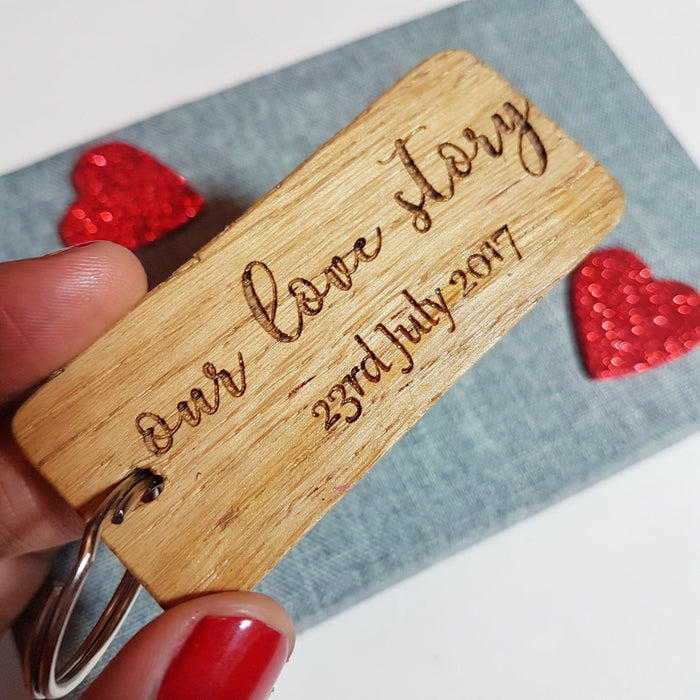 our love story
23rd July 2017